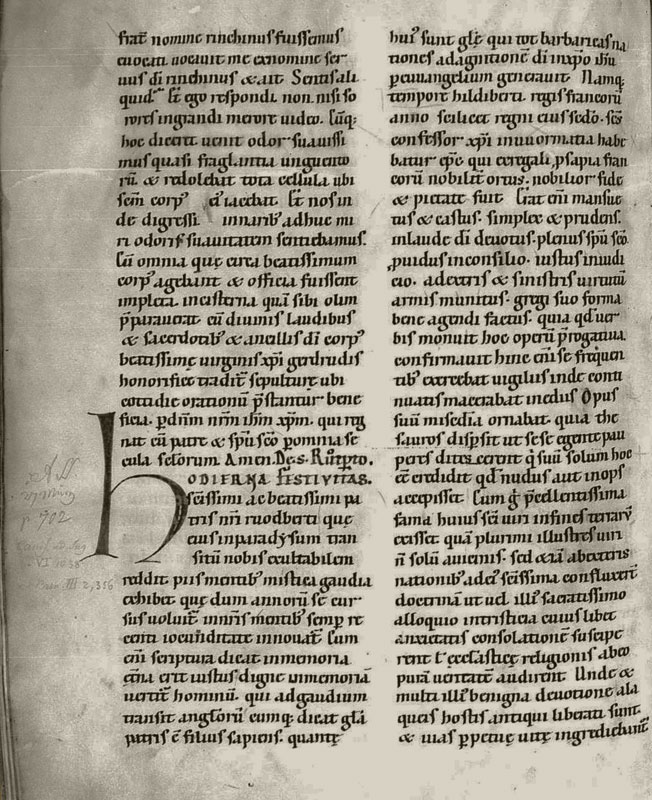 frat̄ nomine rinchinus fuissem'
euocati uocauit me exnomine ser
uus dī rinchinus & ait Sentis ali
quid. Et ego respondi. non. nisi so
rores ingrandi merore uideo. Cūq:
hoc dicerē uenit odor suauissi
mus quasi fraglantia unguento
rū. & redolebat tota cellula ubi
sc̄m corp' eī iacebat. Et nos in
de digressi innarib' adhuc mi
ri odoris suauitatem sentiebamus.
Cū omnia quę circa beatissimum
corp' agebant & officia fuissent
impleta. incisterna quā sibi olim
p̄parauerat cū diuinis laudibus
& sacerdotib' & ancillis dī corp'
beatissimę uirginis xp̄i gerdrudis
honorifice tradit̄ sepulturę ubi
cottidie orationū p̄stantur bene
ficia. p̄dn̄m nr̄m ih̄m xp̄m. qui reg
nat cū patre & sp̄u sc̄o p̄omnia se
cula sc̄lorum. Amen. De. S. Rǒtp̄to.
HODIERNA FESTIVITAS.
sc̄issimi ac beatissimi pa
tris nr̄i ruodberti quę
eius inparadẏsum tran
situ nobis exultabilem
reddit piis mentib' mistica gaudia
exhibet quę dum annorū se cur
sus uoluit innr̄is mentib' semp̄ re
centi iocunditate innouat̄ Cum
enī scriptura dicat inmemoria
ęt̄na erit iustus digne inmemoriā
uertit̄ hominū. qui adgaudium
transit anglorū eumq; dicat glā
patris ē filius sapiens. quantę
hui' sunt glę̄ qui tot barbaricas na
tiones adagnitionē dī inxp̄o ih̄u
p̄euuangelium generauit Namq;
tempore hildiberti. regis francorū
anno scilicet regni eius scdo. sc̄s
confessor xp̄i inuuormatia habe
batur ep̄c qui exregali p̄sapia fran
corū nobilit̄ ortus. nobilior fide
& pietate fuit Erat enī mansue
tus & castus. simplex & prudens.
inlaude dī deuotus. plenus sp̄u sc̄o
p̄uidus inconsilio. iustus iniudi
cio. adextris & sinistris uirtutū
armis munitus. gregi suo forma
bene agendi factus. quia qd̄ uer
bis monuit hoc operū p̄rogatiua
confirmauit hinc enī se frequen
tib' exercebat uigiliis inde conti
nuatis macerabat inediis Opus
suū misc̄dia ornabat. quia the
sauros disp̄sit ut sese egente pau
peres ditescerent q̄ suū solum hoc
eē credidit qd̄ nudus aut inops
accepisset Cum g̊ p̄cellentissima
fama huius sc̄i uiri infines terrarū
exisset quā plurimi illustres uiri
n̄ solū auicinis. sed &iā abexteris
nationib' adei' sc̄issimā confluxert̄
doctrinā ut uel illi' sacratissimo
alloquio intristicia cuius libet
anxietatis consolationē suscipe
rent ł ęcclasticę religionis abeo
purā ueritatē audirent Unde &
multi illi' benigna deuotione ala
queis hostis antiqui liberati sunt.
& uias p̄petuę uitę ingrediebant̄